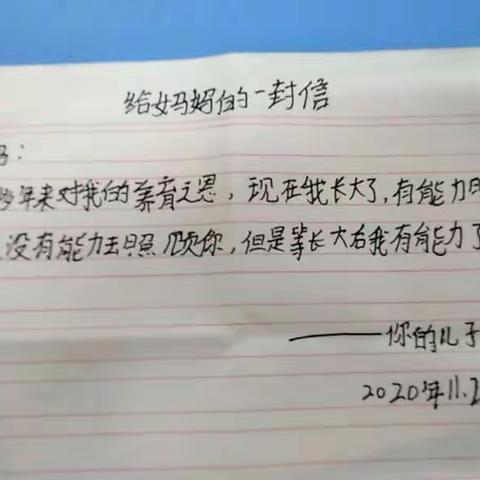 给妈妈的一封信
妈：
多年来对我的养育之恩，现在我长大了，有能力
没有能力去照顾你，但是等长大后我有能力了
——你的儿子
2020年11.2